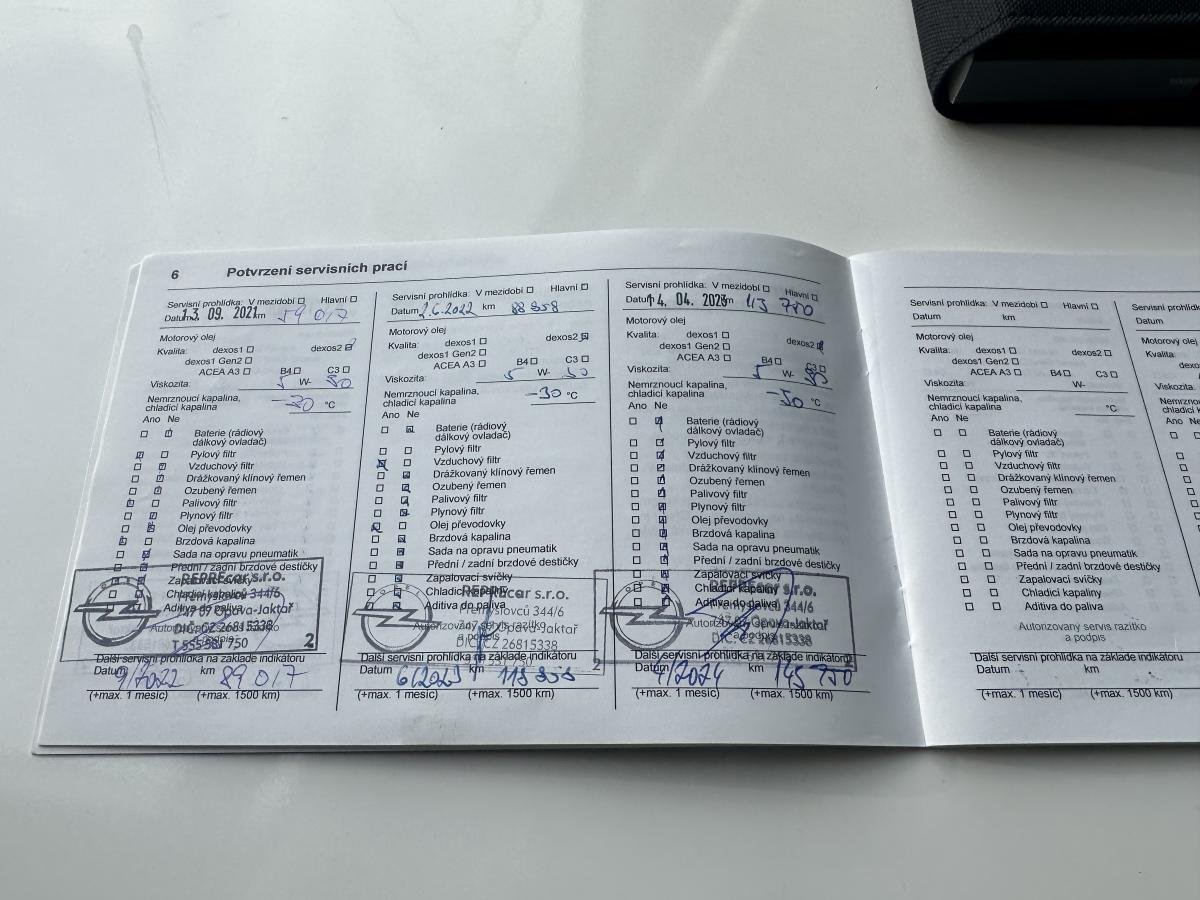 6 Potvrzení servisních prací
Servisní prohlídka: V mezidobí Hlavní
Datum 13. 09. 2021 km 59 017
Motorový olej
Kvalita: dexos1 dexos2
dexos1 Gen2
ACEA A3 B4 C3
Viskozita: 5 W- 30
Nemrznoucí kapalina,
chladicí kapalina -30 °C
Ano Ne
Baterie (rádiový
dálkový ovladač)
Pylový filtr
Vzduchový filtr
Drážkovaný klínový řemen
Ozubený řemen
Palivový filtr
Plynový filtr
Olej převodovky
Brzdová kapalina
Sada na opravu pneumatik
Přední / zadní brzdové destičky
Zapalovací svíčky
Chladicí kapaliny
Aditiva do paliva
REPREcar s.r.o.
Přemyslovců 344/6
747 07 Opava-Jaktař
DIČ: CZ 26815338
2
Autorizovaný servis razítko
a podpis
Další servisní prohlídka na základě indikátoru
Datum 9/2022 km 89 017
(+max. 1 měsíc) (+max. 1500 km)
Servisní prohlídka: V mezidobí Hlavní
Datum 2.6.2022 km 88 858
Motorový olej
Kvalita: dexos1 dexos2
dexos1 Gen2
ACEA A3 B4 C3
Viskozita: 5 W- 30
Nemrznoucí kapalina,
chladicí kapalina -30 °C
Ano Ne
Baterie (rádiový
dálkový ovladač)
Pylový filtr
Vzduchový filtr
Drážkovaný klínový řemen
Ozubený řemen
Palivový filtr
Plynový filtr
Olej převodovky
Brzdová kapalina
Sada na opravu pneumatik
Přední / zadní brzdové destičky
Zapalovací svíčky
Chladicí kapaliny
Aditiva do paliva
OPEL
REPREcar s.r.o.
Přemyslovců 344/6
747 07 Opava-Jaktař
DIČ: CZ 26815338
2
Autorizovaný servis razítko
a podpis
Další servisní prohlídka na základě indikátoru
Datum 6/2023 km 118 858
(+max. 1 měsíc) (+max. 1500 km)
Servisní prohlídka: V mezidobí Hlavní
Datum 14. 04. 2023 km 113 750
Motorový olej
Kvalita: dexos1 dexos2
dexos1 Gen2
ACEA A3 B4 C3
Viskozita: 5 W- 30
Nemrznoucí kapalina,
chladicí kapalina °C
Ano Ne
Baterie (rádiový
dálkový ovladač)
Pylový filtr
Vzduchový filtr
Drážkovaný klínový řemen
Ozubený řemen
Palivový filtr
Plynový filtr
Olej převodovky
Brzdová kapalina
Sada na opravu pneumatik
Přední / zadní brzdové destičky
Zapalovací svíčky
Chladicí kapaliny
Aditiva do paliva
REPREcar s.r.o.
Přemyslovců 344/6
747 07 Opava-Jaktař
DIČ: CZ 26815338
2
Autorizovaný servis razítko
a podpis
Další servisní prohlídka na základě indikátoru
Datum 4/2024 km 145 750
(+max. 1 měsíc) (+max. 1500 km)
Servisní prohlídka: V mezidobí Hlavní
Datum km
Motorový olej
Kvalita: dexos1 dexos2
dexos1 Gen2
ACEA A3 B4 C3
Viskozita: W-
Nemrznoucí kapalina,
chladicí kapalina °C
Ano Ne
Baterie (rádiový
dálkový ovladač)
Pylový filtr
Vzduchový filtr
Drážkovaný klínový řemen
Ozubený řemen
Palivový filtr
Plynový filtr
Olej převodovky
Brzdová kapalina
Sada na opravu pneumatik
Přední / zadní brzdové destičky
Zapalovací svíčky
Chladicí kapaliny
Aditiva do paliva
Autorizovaný servis razítko
a podpis
Další servisní prohlídka na základě indikátoru
Datum km
(+max. 1 měsíc) (+max. 1500 km)
Servisní prohlídka
Datum
Motorový olej
Kvalita:
Viskozita:
Ano Ne
Další
Datum
(+max.